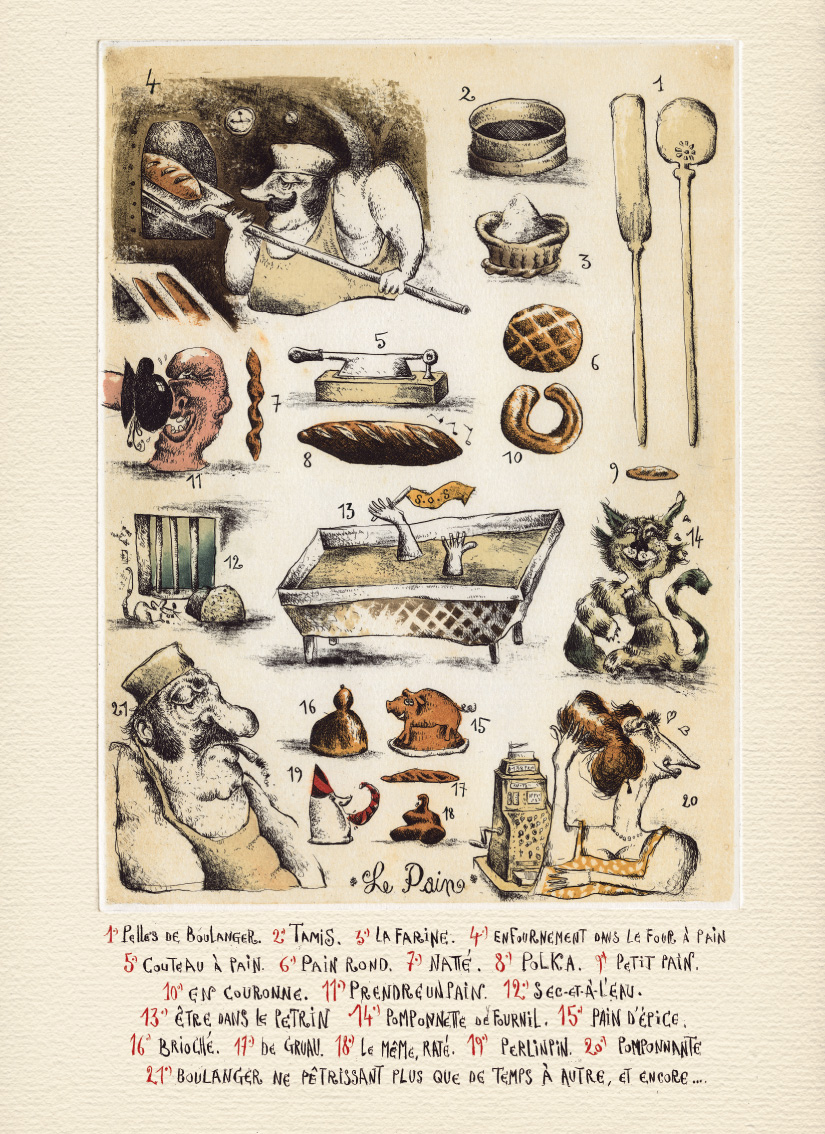 4
2
1
3
5
6
7
8
10
9
11
S.O.S
13
14
12
21
16
15
19
17
18
20
Le Pain
1°) Pelles de Boulanger. 2°) Tamis. 3°) La farine. 4°) enfournement dans le four à pain
5°) Couteau à pain. 6°) Pain rond. 7°) Natté. 8°) Polka. 9°) Petit pain.
10°) en couronne. 11°) Prendre un pain. 12°) Sec-et-à-l'eau.
13°) être dans le petrin 14°) Pomponnette de fournil. 15°) Pain d'épice.
16°) Brioche. 17°) de Gruau. 18°) Le même, raté. 19°) Perlinpin. 20°) Pomponnante
21°) Boulanger ne pêtrissant plus que de temps à autre, et encore....